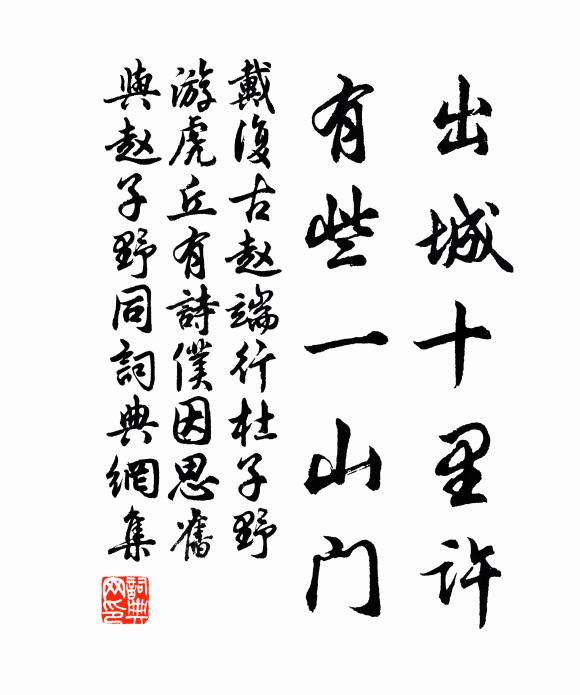 出城十里許
有些一山門
戴復古趙端行杜子野
游虎丘有詩僕因思舊
與趙子野同詞典網集
詞典网印